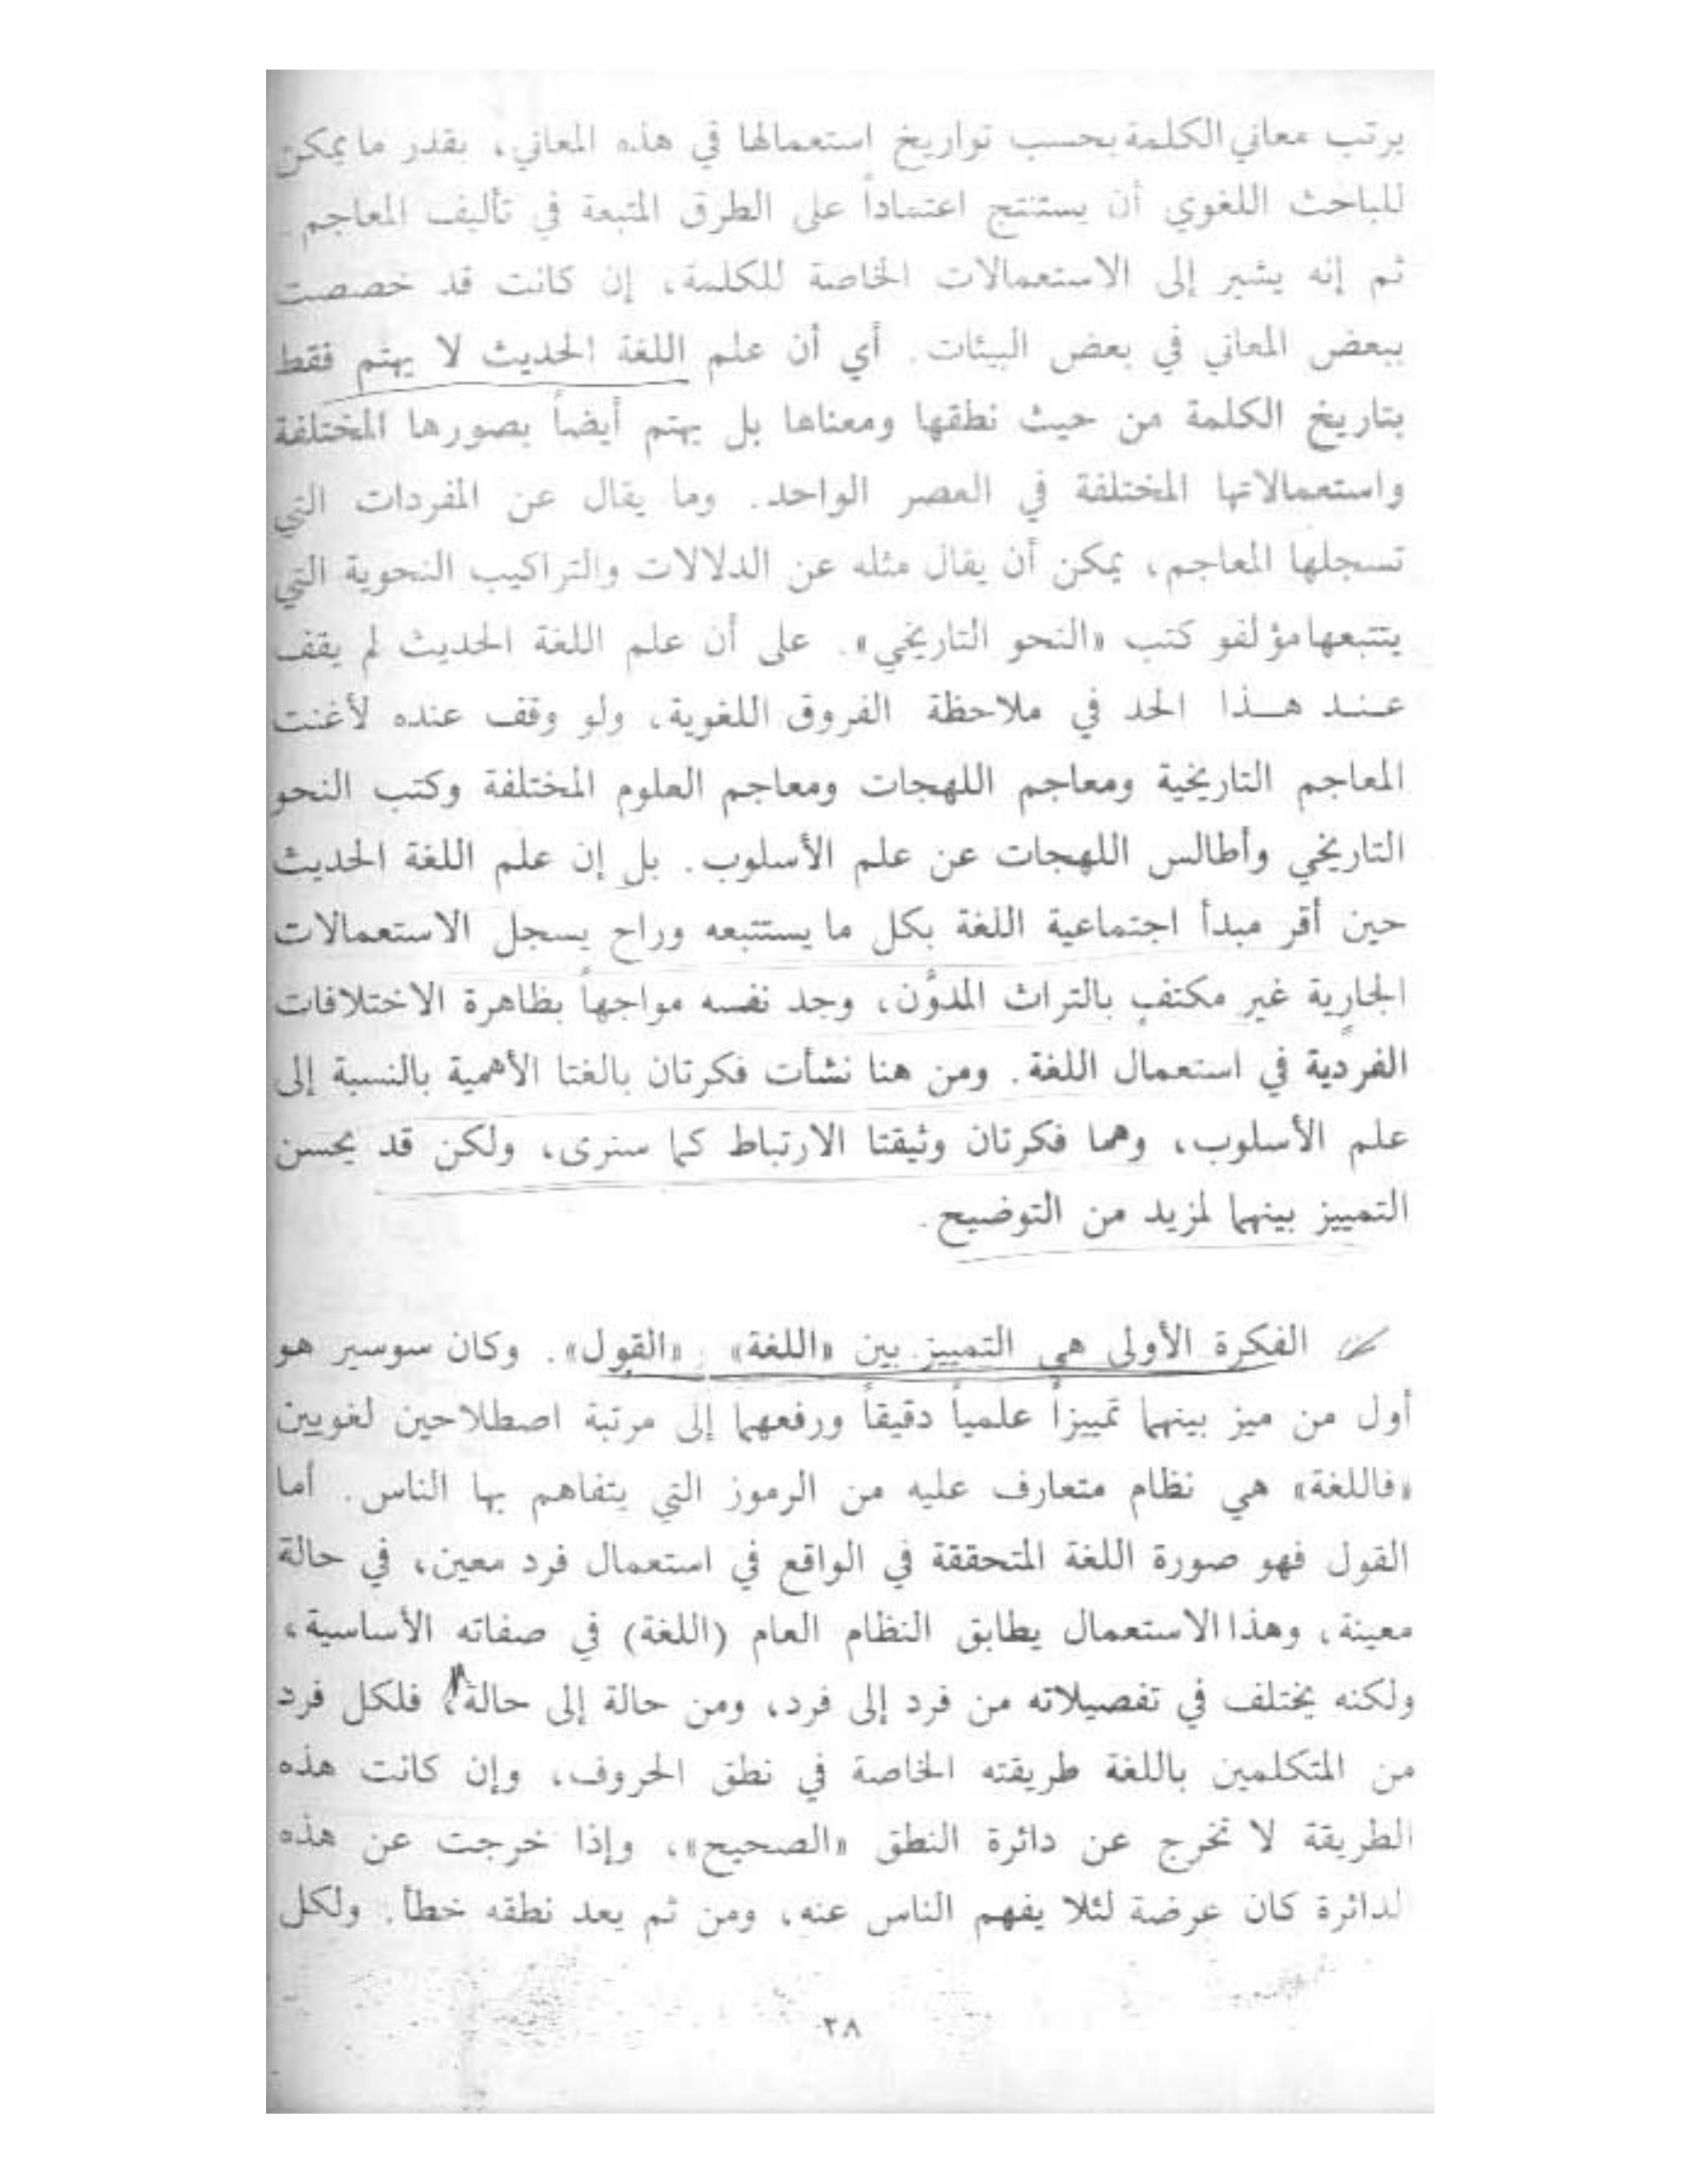 يرتب معاني الكلمة بحسب تواريخ استعمالها في هذه المعاني، بقدر ما يمكن
للباحث اللغوي أن يستنتج اعتماداً على الطرق المتبعة في تأليف المعاجم.
ثم إنه يشير إلى الاستعمالات الخاصة للكلمة، إن كانت قد خصصت
ببعض المعاني في بعض البيئات. أي أن علم اللغة الحديث لا يهتم فقط
بتاريخ الكلمة من حيث نطقها ومعناها بل يهتم أيضاً بصورها المختلفة
واستعمالاتها المختلفة في العصر الواحد. وما يقال عن المفردات التي
تسجلها المعاجم، يمكن أن يقال مثله عن الدلالات والتراكيب النحوية التي
يتتبعها مؤلفو كتب «النحو التاريخي». على أن علم اللغة الحديث لم يقف
عنـد هـذا الحد في ملاحظة الفروق اللغوية، ولو وقف عنده لأغنت
المعاجم التاريخية ومعاجم اللهجات ومعاجم العلوم المختلفة وكتب النحو
التاريخي وأطالس اللهجات عن علم الأسلوب. بل إن علم اللغة الحديث
حين أقر مبدأ اجتماعية اللغة بكل ما يستتبعه وراح يسجل الاستعمالات
الجارية غير مكتفٍ بالتراث المدوَّن، وجد نفسه مواجهاً بظاهرة الاختلافات
الفردية في استعمال اللغة. ومن هنا نشأت فكرتان بالغتا الأهمية بالنسبة إلى
علم الأسلوب، وهما فكرتان وثيقتا الارتباط كما سنرى، ولكن قد يحسن
التمييز بينهما لمزيد من التوضيح.
الفكرة الأولى هي التمييز بين «اللغة» و «القول». وكان سوسير هو
أول من ميز بينهما تمييزاً علمياً دقيقاً ورفعهما إلى مرتبة اصطلاحين لغويين
«فاللغة» هي نظام متعارف عليه من الرموز التي يتفاهم بها الناس. أما
القول فهو صورة اللغة المتحققة في الواقع في استعمال فرد معين، في حالة
معينة، وهذا الاستعمال يطابق النظام العام (اللغة) في صفاته الأساسية،
ولكنه يختلف في تفصيلاته من فرد إلى فرد، ومن حالة إلى حالة، فلكل فرد
من المتكلمين باللغة طريقته الخاصة في نطق الحروف، وإن كانت هذه
الطريقة لا تخرج عن دائرة النطق «الصحيح»، وإذا خرجت عن هذه
لدائرة كان عرضة لئلا يفهم الناس عنه، ومن ثم يعد نطقه خطأ. ولكل
٣٨